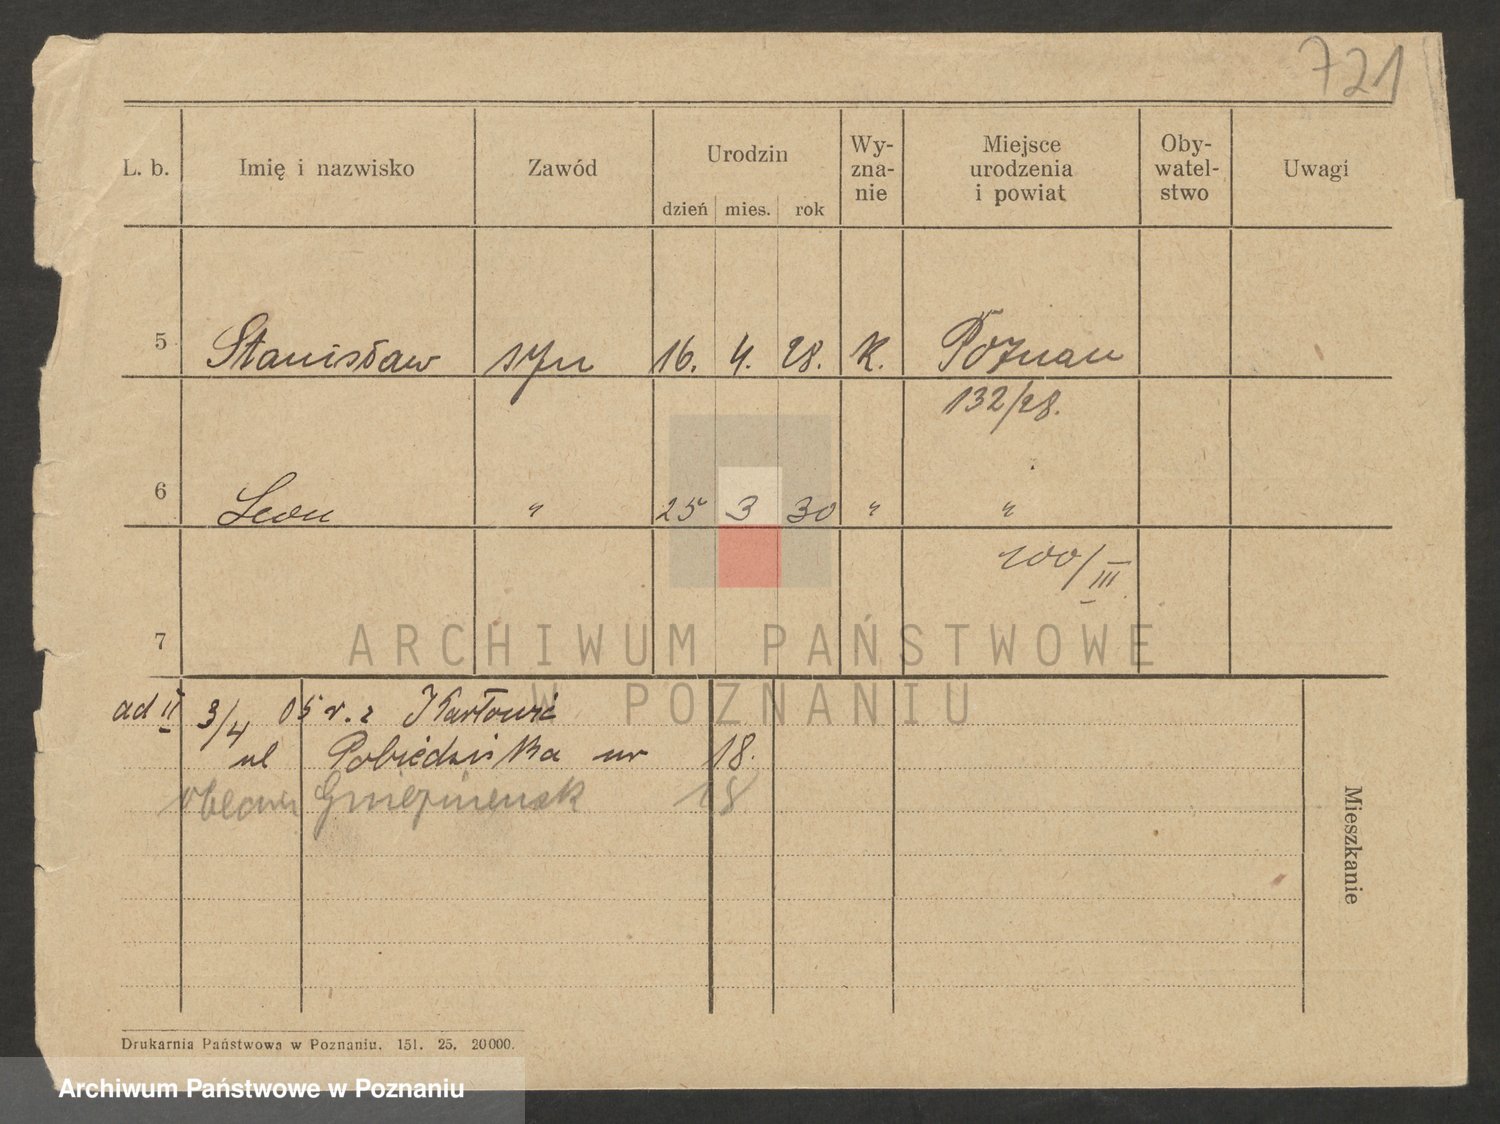 721
L. b. Imię i nazwisko Zawód Urodzin Wy- Miejsce Oby- Uwagi
zna- urodzenia watel-
dzień mies. rok nie i powiat stwo
5 Stanisław syn 16. 4. 28. K. Poznań
132/28.
6 Leon " 25 3 30 " "
100/III
7
ARCHIWUM PAŃSTWOWE
W POZNANIU
ad II 3/4 05 r. z
ul Pobiedziska nr 18.
18
Mieszkanie
Drukarnia Państwowa w Poznaniu. 151. 25. 20000.
Archiwum Państwowe w Poznaniu